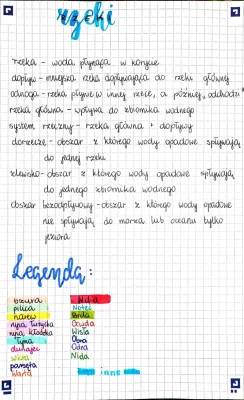 rzeki
rzeka - woda płynąca w korycie
dopływ - mniejsza rzeka dopływająca do rzeki głównej
odnoga - rzeka płynie w innej rzece, a później „odchodzi”
rzeka główna - wpływa do zbiornika wodnego
system rzeczny - rzeka główna + dopływy
dorzecze - obszar z którego wody opadowe spływają
do jednej rzeki
zlewisko - obszar z którego wody opadowe spływają
do jednego zbiornika wodnego
obszar bezodpływowy - obszar z którego wody opadowe
nie spływają do morza lub oceanu tylko
jeziora
Legenda:
bzura
pilica
narew
nysa łużycka
nysa kłodzka
Tyna
dunajec
wkra
parsęta
warta
Nida
Noteć
Brda
Osyda
Wisła
Obra
Odra
Nida
inne